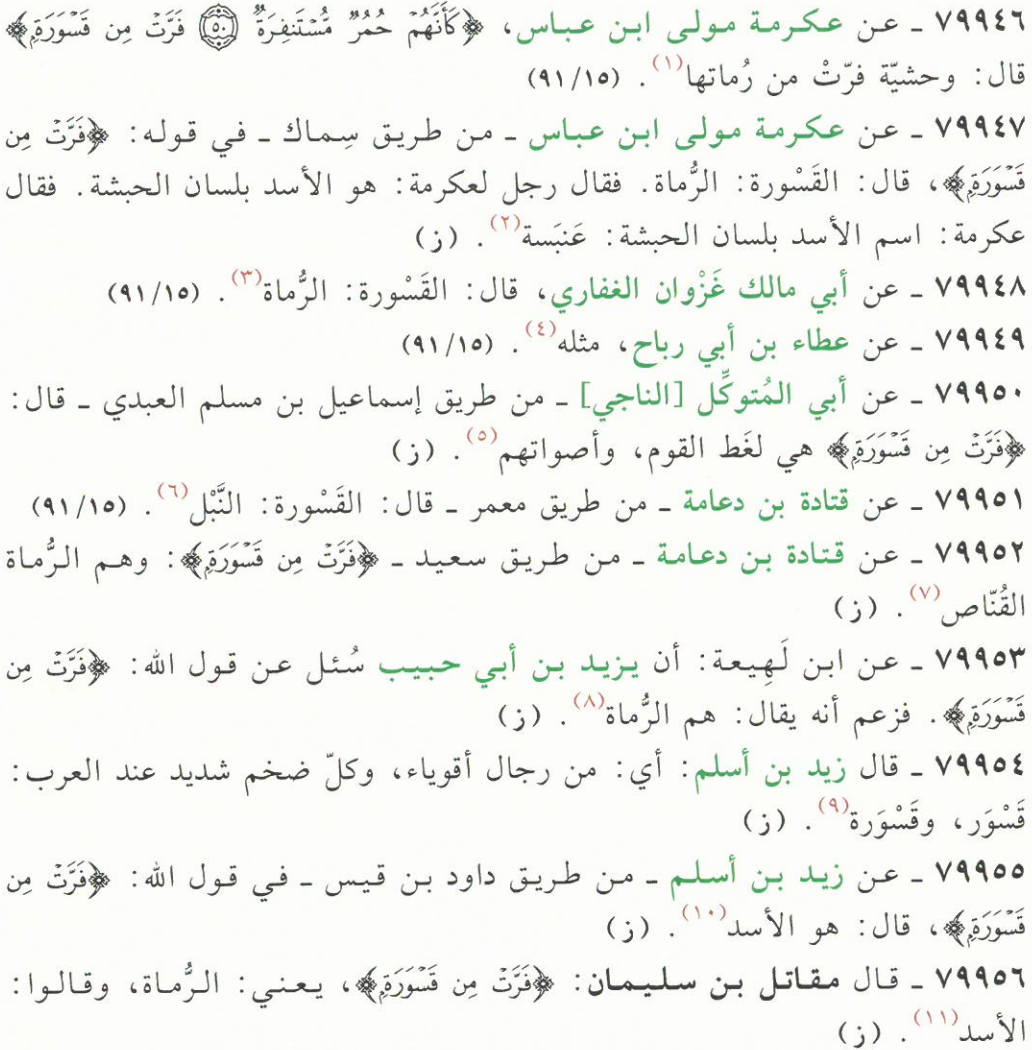 ٧٩٩٤٦ ـ عن عكرمة مولى ابن عباس، ﴿كَأَنَّهُمْ حُمُرٌ مُّسْتَنفِرَةٌ ۝٥٠ فَرَّتْ مِن قَسْوَرَةٍ﴾
قال: وحشيّة فرّتْ من رُماتها(١). (١٥/٩١)
٧٩٩٤٧ ـ عن عكرمة مولى ابن عباس ـ من طريق سِماك ـ في قوله: ﴿فَرَّتْ مِن
قَسْوَرَةٍ﴾، قال: القَسْورة: الرُّماة. فقال رجل لعكرمة: هو الأسد بلسان الحبشة. فقال
عكرمة: اسم الأسد بلسان الحبشة: عَنبَسة(٢). (ز)
٧٩٩٤٨ ـ عن أبي مالك غَزْوان الغفاري، قال: القَسْورة: الرُّماة(٣). (١٥/٩١)
٧٩٩٤٩ ـ عن عطاء بن أبي رباح، مثله(٤). (١٥/٩١)
٧٩٩٥٠ ـ عن أبي المُتوكِّل [الناجي] ـ من طريق إسماعيل بن مسلم العبدي ـ قال:
﴿فَرَّتْ مِن قَسْوَرَةٍ﴾ هي لغَط القوم، وأصواتهم(٥). (ز)
٧٩٩٥١ ـ عن قتادة بن دعامة ـ من طريق معمر ـ قال: القَسْورة: النَّبْل(٦). (١٥/٩١)
٧٩٩٥٢ ـ عن قتادة بن دعامة ـ من طريق سعيد ـ ﴿فَرَّتْ مِن قَسْوَرَةٍ﴾: وهم الرُّماة
القُنّاص(٧). (ز)
٧٩٩٥٣ ـ عن ابن لَهِيعة: أن يزيد بن أبي حبيب سُئل عن قول الله: ﴿فَرَّتْ مِن
قَسْوَرَةٍ﴾. فزعم أنه يقال: هم الرُّماة(٨). (ز)
٧٩٩٥٤ ـ قال زيد بن أسلم: أي: من رجال أقوياء، وكلّ ضخم شديد عند العرب:
قَسْوَر، وقَسْوَرة(٩). (ز)
٧٩٩٥٥ ـ عن زيد بن أسلم ـ من طريق داود بن قيس ـ في قول الله: ﴿فَرَّتْ مِن
قَسْوَرَةٍ﴾، قال: هو الأسد(١٠). (ز)
٧٩٩٥٦ ـ قال مقاتل بن سليمان: ﴿فَرَّتْ مِن قَسْوَرَةٍ﴾، يعني: الرُّماة، وقالوا:
الأسد(١١). (ز)